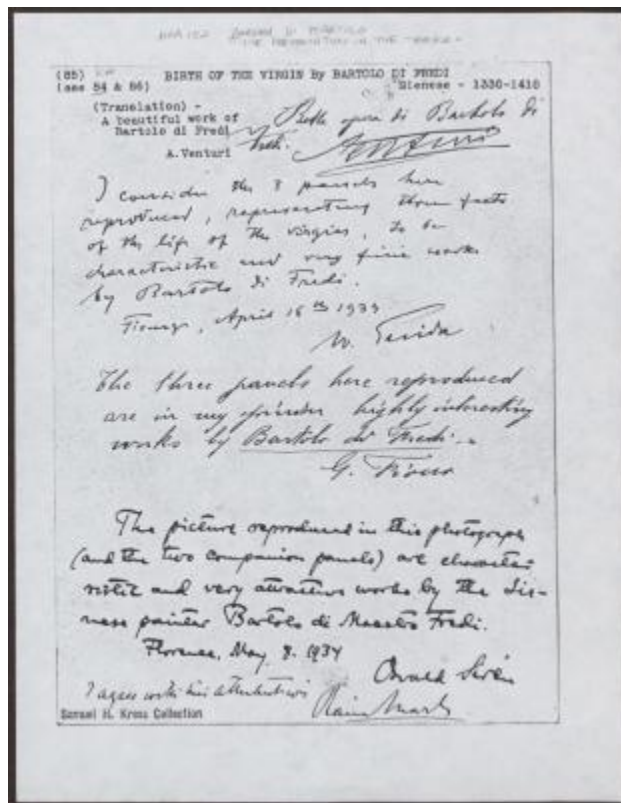 BARTOLO DI FREDI
THE PRESENTATION IN THE
(85) BIRTH OF THE VIRGIN By BARTOLO DI FREDI
(see 84 & 86) Sienese - 1330-1410
(Translation) -
A beautiful work of
Bartolo di Fredi
A.Venturi
Bella opera di Bartolo di
Fredi.
AVenturi
I consider the 3 panels here
reproduced, representing three facts
of the life of the virgin, to be
characteristic and very fine works
by Bartolo di Fredi.
April 16th
The three panels here reproduced
are in my opinion highly interesting
works by Bartolo di Fredi.
G. Fiocco
The picture reproduced in this photograph
(and the two companion panels) are characte-
ristic and very attractive works by the Sie-
nese painter Bartolo di Maestro Fredi.
Florence, May 8. 1934
Osvald Sirén
I agree with this attribution
Samuel H. Kress Collection